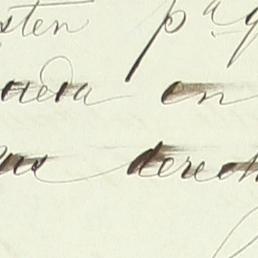 sten pa
ueda en
us derech